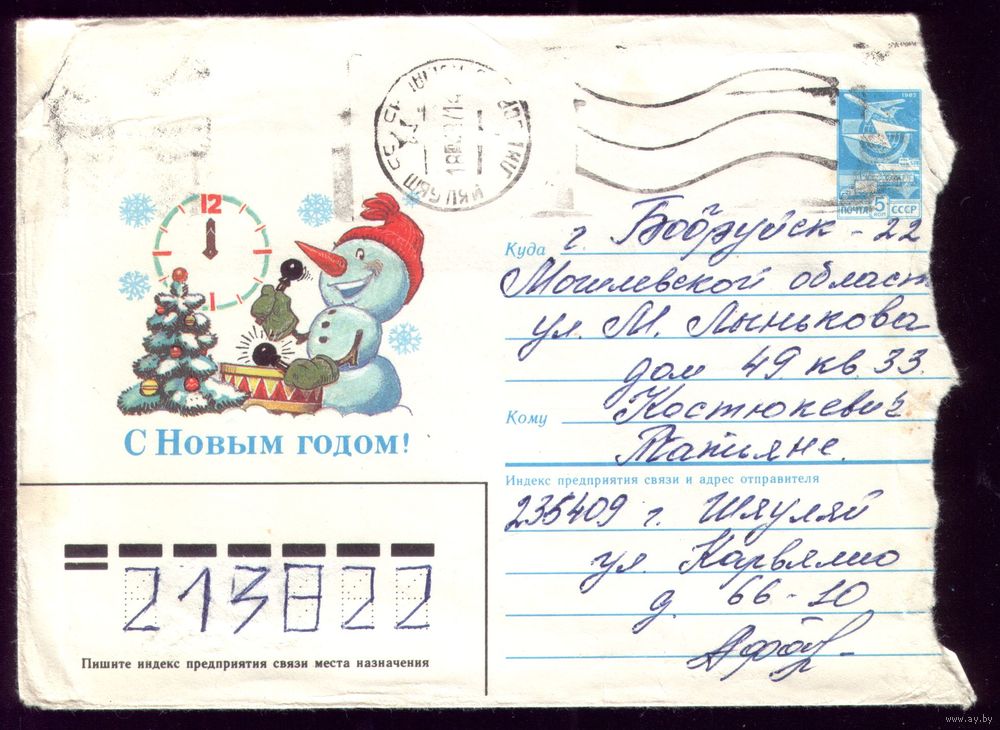 1982
ПОЧТА 5 КОП СССР
12
1
С Новым годом!
Куда г. Бобруйск - 22
Могилевской област
ул. М. Лынькова
дом 49 кв. 33.
Кому Костюкевич
Татьяне.
Индекс предприятия связи и адрес отправителя
235409 г. Шяуляй
ул.
д. 66-10
213822
Пишите индекс предприятия связи места назначения
www.ay.by